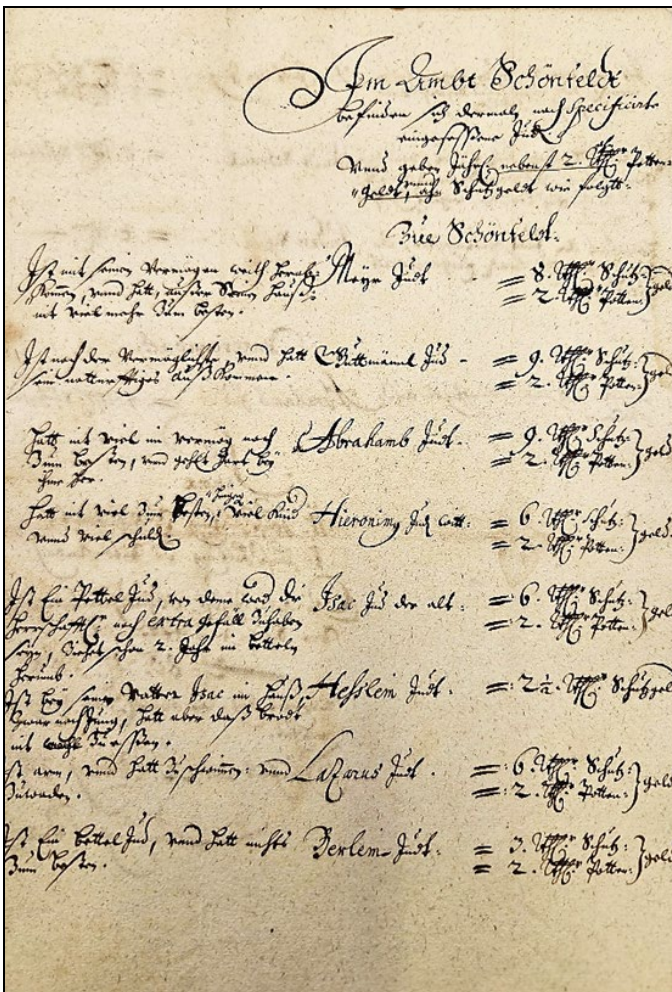 Im Ambt Schönfeldt
befinden sich dermaln nach Specificirte
eingesessene Jud.
Unnd geben Jährl. nebenst 2. Rthlr Potten-
geldt, ahn Schutzgeldt wie folgtt:
Zue Schönfeldt:
Ist mit seinem Vermögen weith herab-
kommen, unnd hatt, ausser Seinem hauss,
nit viel mehr zum besten.
Meyr Judt = 8. Rthlr Schutz-
= 2. Rthlr Potten- } geld
Ist noch der Vermöglichste, unnd hatt
sein notturfftiges ausskommen.
Guttmännl Jud - = 9. Rthlr Schutz-
= 2. Rthlr Potten- } geld
hatt nit viel im vermög noch
zum besten, und geht bey
ihme her.
Abrahamb Judt. = 9. Rthlr Schutz-
= 2. Rthlr Potten- } geld
hatt nit viel zum besten, viel Kind
unnd viel schuld.
Hieronimy Jud = 6 Rthlr Schutz-
= 2. Rthlr Potten- } geld.
Ist Ein Pettel Jud, von deme die
herrschafft noch extra gefäll Zuhaben
Ziehet schon 2. Jahr im betteln
herumb.
Isac Jud der alt: = 6. Rthlr Schutz-
= 2. Rthlr Potten- } geld
Ist bey seinem Vatter Isac im hauss,
Zwar noch Jung, hatt aber dass brodt
nit zu essen.
Hesslein Judt. = 2½. Rthlr Schutzgeld
Ist arm, unnd hatt Zuschwimmen unnd
Zuwaden.
Lazarus Judt. = 6 Rthlr Schutz-
= 2. Rthlr Potten- } geld
Ist Ein bettel Jud, unnd hatt nichts
zum besten.
Berlein Judt. = 3. Rthlr Schutz-
= 2. Rthlr Potten- } geld